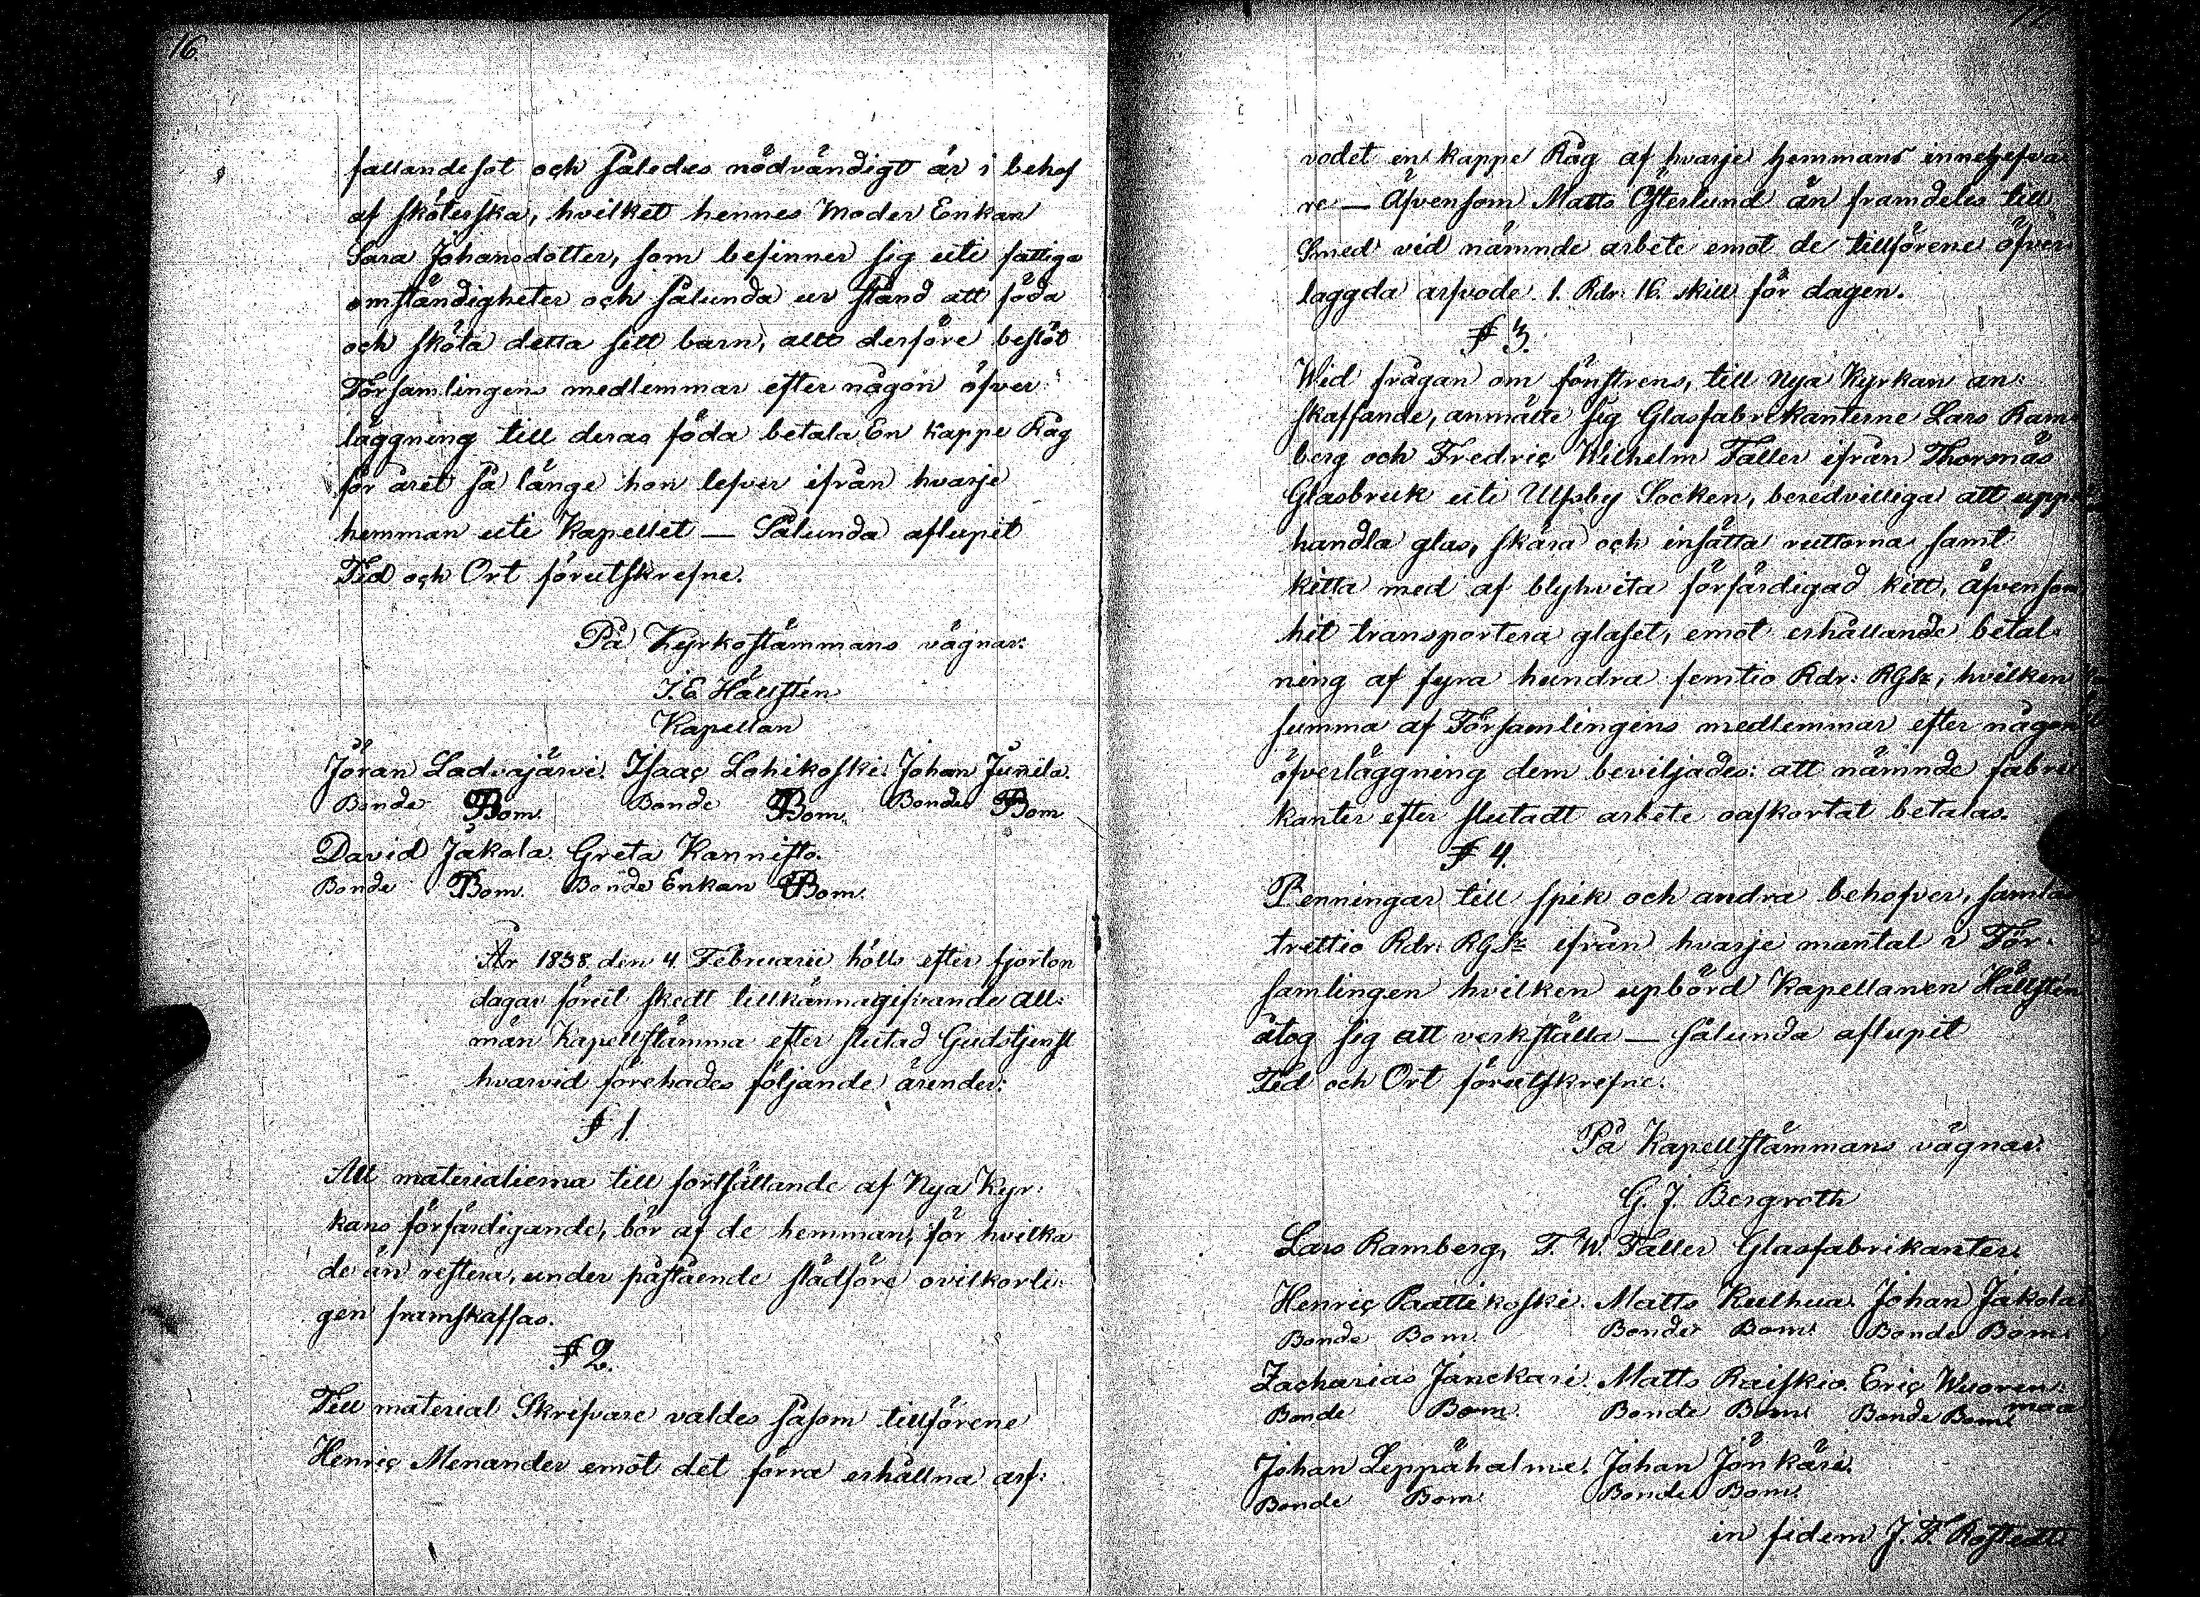 16.
fallandesot och således nödvändigt är i behof
af sköterska, hvilket hennes Moder Enkan
Sara Johansdotter, som befinner sig uti fattiga
omständigheter och sålunda ur stånd att föda
och sköta detta sitt barn, allt derföre beslöt
Församlingens medlemmar efter någon öfver-
läggning till deras föda betala En kappe Råg
för året så länge hon lefver ifrån hvarje
hemman uti Kapellet — Sålunda aflupit
Tid och Ort förutskrefne.
På Kyrkostämmans vägnar:
J. E. Hällstén
Kapellan
Jöran Ladvajärvi. Isaac Lohikoski. Johan Junila.
Bonde Bom. Bonde Bom. Bonde Bom.
David Jakola. Greta Kannisto.
Bonde Bom. Bonde Enkan Bom.
År 1838 den 4 Februarii hölls efter fjorton
dagar förut skedt tillkännagifvande all-
män Kapellstämma efter slutad Gudstjenst
hvarvid förehades följande ärender:
§ 1.
All materialierna till fortsättande af Nya Kyr-
kans förfärdigande, bör af de hemman, för hvilka
de än restera, under påstående slädföre ovilkorli-
gen framskaffas.
§ 2.
Till material Skrifvare valdes såsom tillförene
Henric Menander emot det förra erhållna arf-
vodet en kappe Råg af hvarje hemmans innehafva-
re — Äfvensom Matts Österlund än framdeles till
Smed vid nämnde arbete emot de tillförene öfver-
laggda arfvode 1. Rdr. 16. skill för dagen.
§ 3.
Wid frågan om fönstrens, till Nya Kyrkan an-
skaffande, anmälte sig Glasfabrikanterne Lars Ram-
berg och Fredric Wilhelm Faller ifrån Thorsnäs
Glasbruk uti Ulfsby Socken, beredvilliga att upp-
handla glas, skära och insätta ruttorna samt
kitta med af blyhvita förfärdigad kitt, äfvensom
hit transportera glaset, emot erhållande betal-
ning af fyra hundra femtio Rdr: RGls, hvilken
summa af Församlingens medlemmar efter någon
öfverläggning dem beviljades: att nämnde fabri-
kanter efter slutadt arbete oafkortat betalas.
§ 4.
Penningar till spik och andra behofver, samlas
trettio Rdr: RGls ifrån hvarje mantal i För-
samlingen hvilken upbörd Kapellanen Hällstén
åtog sig att verkställa — sålunda aflupit
Tid och Ort förutskrefne.
På Kapellstämmans vägnar:
G. J. Bergroth
Lars Ramberg, F. W. Faller Glasfabrikanter.
Henric Paattikoski. Matts Kulhua. Johan Jakola
Bonde Bom. Bonde Bom. Bonde Bom.
Zacharias Jänckäri. Matts Raiskio. Eric Wuoren-
maa
Bonde Bom. Bonde Bom. Bonde Bom.
Johan Leppähalme. Johan Jönkäri.
Bonde Bom. Bonde Bom.
in fidem J. F. Rostedt